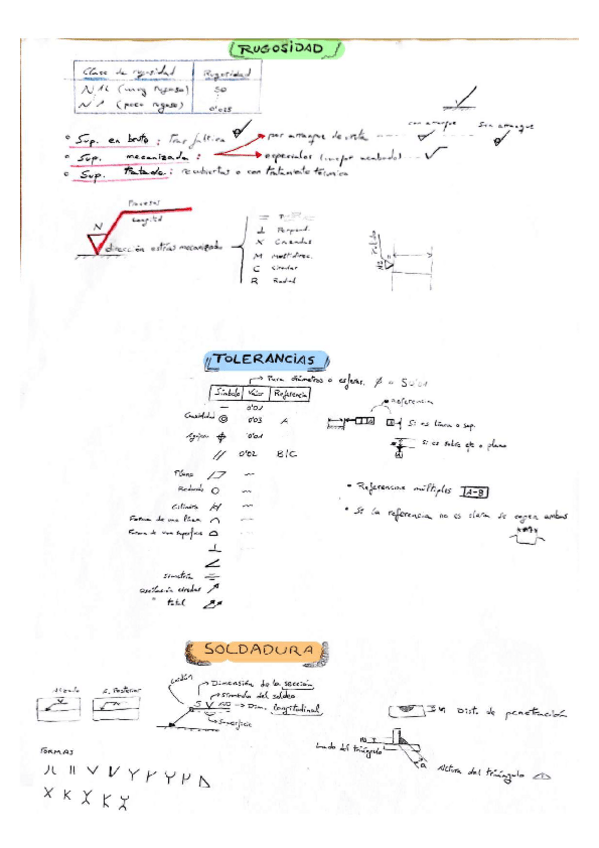 RUGOSIDAD
Clase de rugosidad Rugosidad
N 12 (muy rugoso) 50
N 1 (poco rugoso) 0'025
con arranque Sin arranque
Sup. en bruto: Tras fábrica
por arranque de viruta
Sup. mecanizada:
especiales (mejor acabado)
Sup. tratada: recubiertas o con tratamiento térmico
Procesos
Longitud
N
dirección estrías mecanizado
=
⊥ Perpend.
X Cruzadas
M Multidirec.
C Circular
R Radial
Pulido
N2
TOLERANCIAS
Para diámetros o esferas. ø = S 0'01
Símbolo Valor Referencia
— 0'01
◎ 0'03 A
⌖ 0'01
// 0'02 B/C
Referencia
Si es línea o sup.
Si es sobre eje o plano
Plano
Redondo
Cilindro
Forma de una línea
Forma de una superficie
⊥
∠
Simetría
Oscilación circular
" total
Referencias múltiples A-B
Si la referencia no es clara se cogen ambas
SOLDADURA
cordón
Dimensión de la sección
Símbolo del soldeo
Dim. longitudinal
Superficie
Alzado
A. Posterior
S Dist. de penetración
Lado del triángulo
Altura del triángulo
a
FORMAS